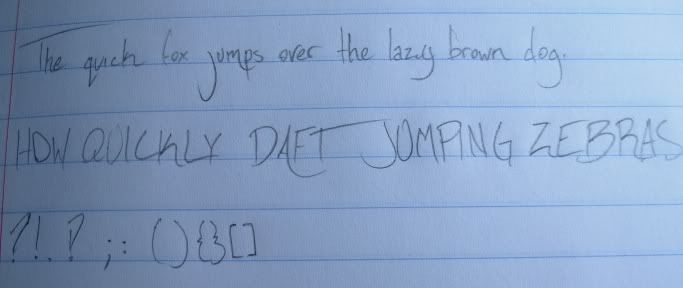 The quick fox jumps over the lazy brown dog.
HOW QUICKLY DAFT JUMPING ZEBRAS
?!.? ;: () {} []